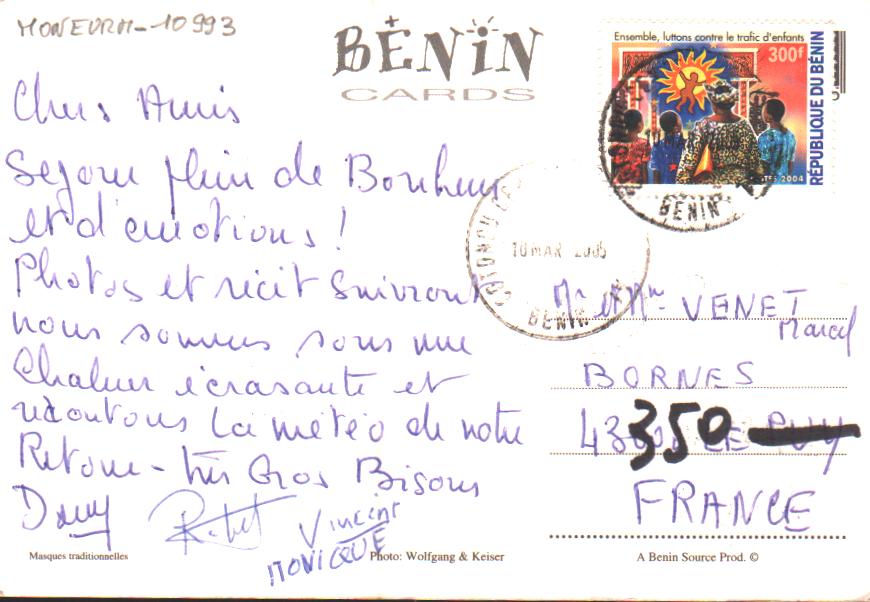 MONEVRM-10993
BENIN
CARDS
Ensemble, luttons contre le trafic d'enfants
300f
RÉPUBLIQUE DU BÉNIN
2004
BENIN
COTONOU
10 MAR 2005
BENIN
Chers Amis
Séjour plein de Bonheur
et d'émotions !
Photos et récit suivront
nous sommes sous une
Chaleur écrasante et
redoutons la météo de notre
Retour - très Gros Bisous
Dany
Vincent
MONIQUE
Mr et Mme VENET
Marcel
BORNES
43350 LE PUY
FRANCE
Masques traditionnelles
Photo: Wolfgang & Keiser
A Benin Source Prod. ©